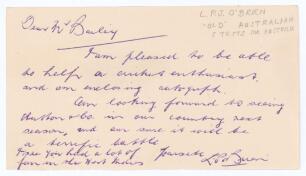 L.P.J. O'BRIEN
"OLD" AUSTRALIAN
5 TESTS FOR AUSTRALIA
Dear Mr Bailey
I am pleased to be able
to help a cricket enthusiast
and am enclosing autograph.
Am looking forward to seeing
Hutton & Co. in our country next
season, and am sure it will be
a terrific battle
Hope you had a lot of
fun in the West Indies
Yours etc
Leo O'Brien